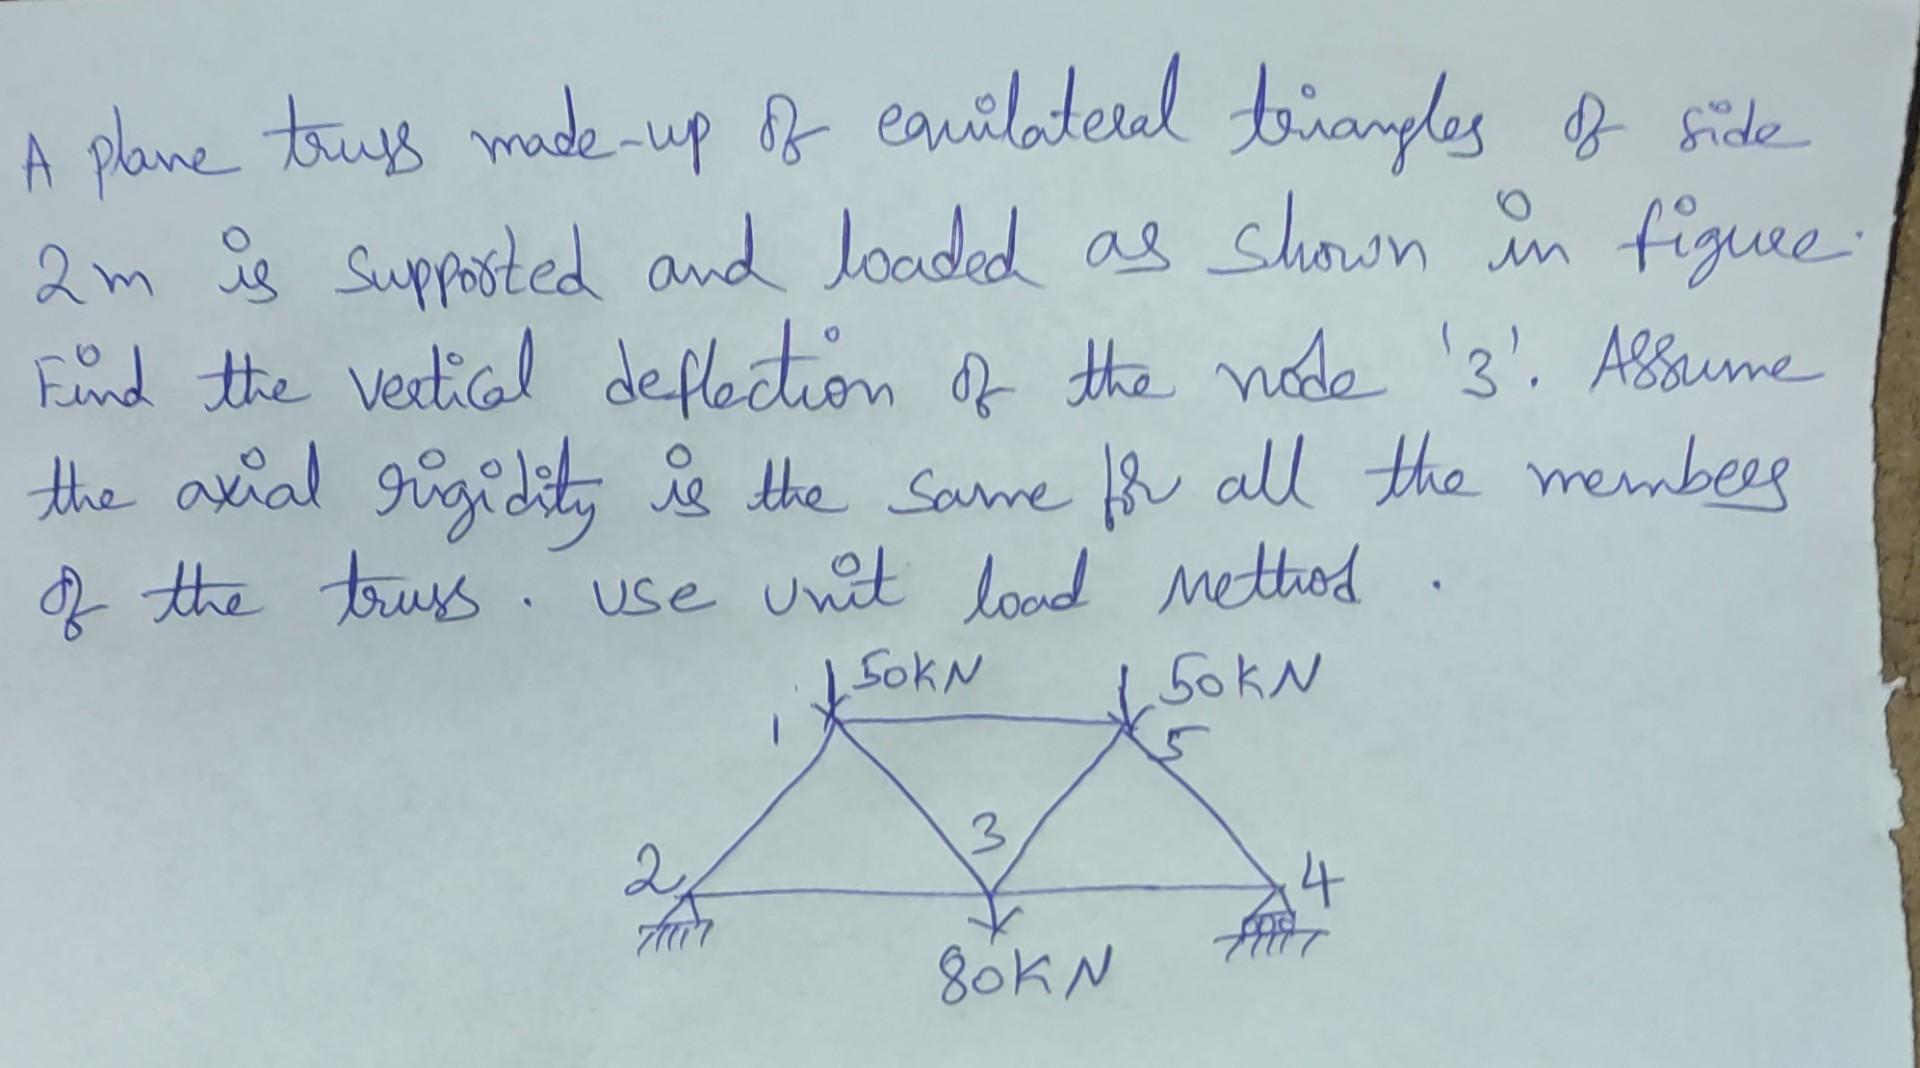 A plane truss made-up of equilateral triangles of side
2m is supported and loaded as shown in figure.
Find the vertical deflection of the node '3'. Assume
the axial rigidity is the same for all the members
of the truss. use unit load Method.
50KN 50KN
1 5
3
2 4
80KN